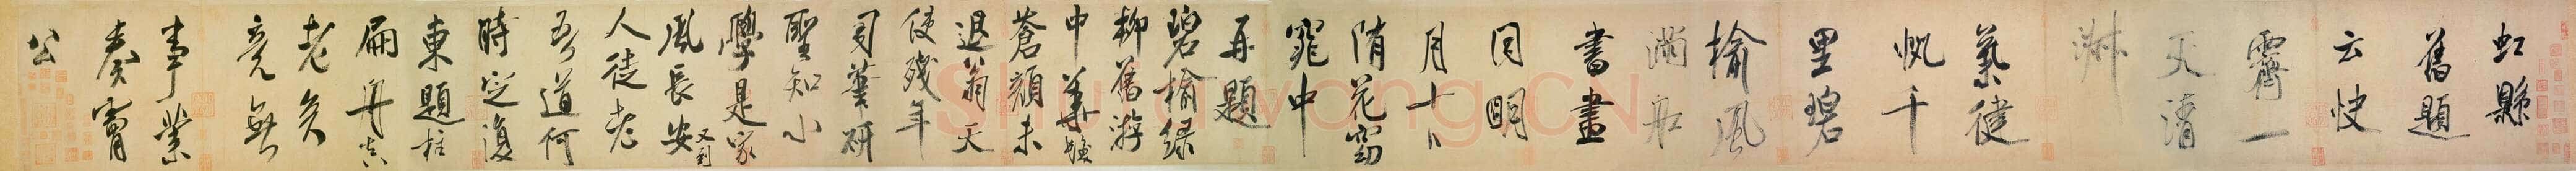 虹縣
舊題
云快
霽一
天清
淑
氣健
帆千
里碧
榆風
滿舡
書畫
同明
月十日
隋花窈
窕中
再題
碧榆綠
柳舊游
中華髮
蒼顏未
退翁天
使殘年
司筆研
聖知小
學是家
風長安又到
人徒老
吾道何
時定復
東題柱
扁舟真
老矣
竟無
事業
奏膚
公